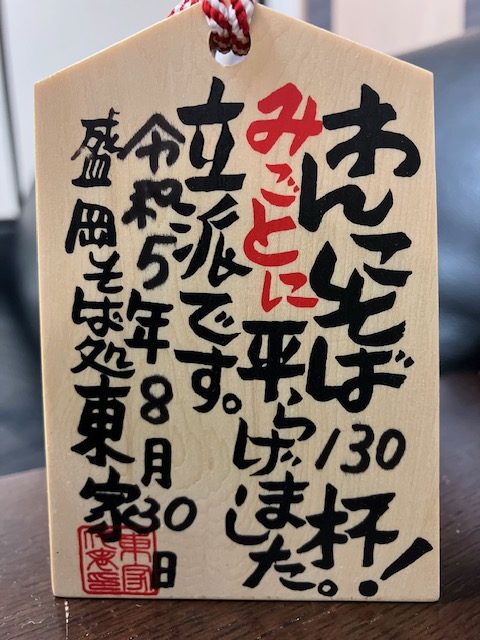 わんこそば130杯！
みごとに平らげました。
立派です。
令和5年8月30日
盛岡そば処東家